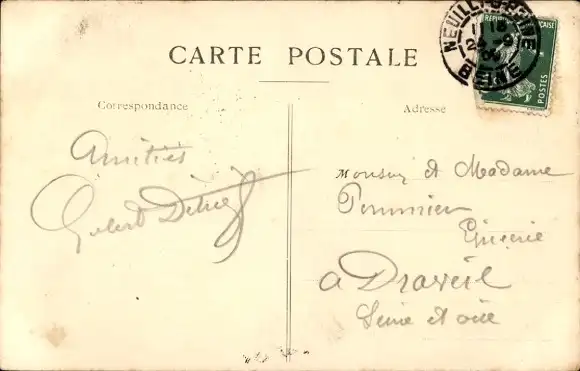 CARTE POSTALE
Correspondance
Adresse
NEUILLY
SEINE
RÉPUBLIQUE FRANÇAISE
POSTES
Amitiés
Gilbert
Monsieur et Madame
Pommier
Epicerie
a Draveil
Seine et oise